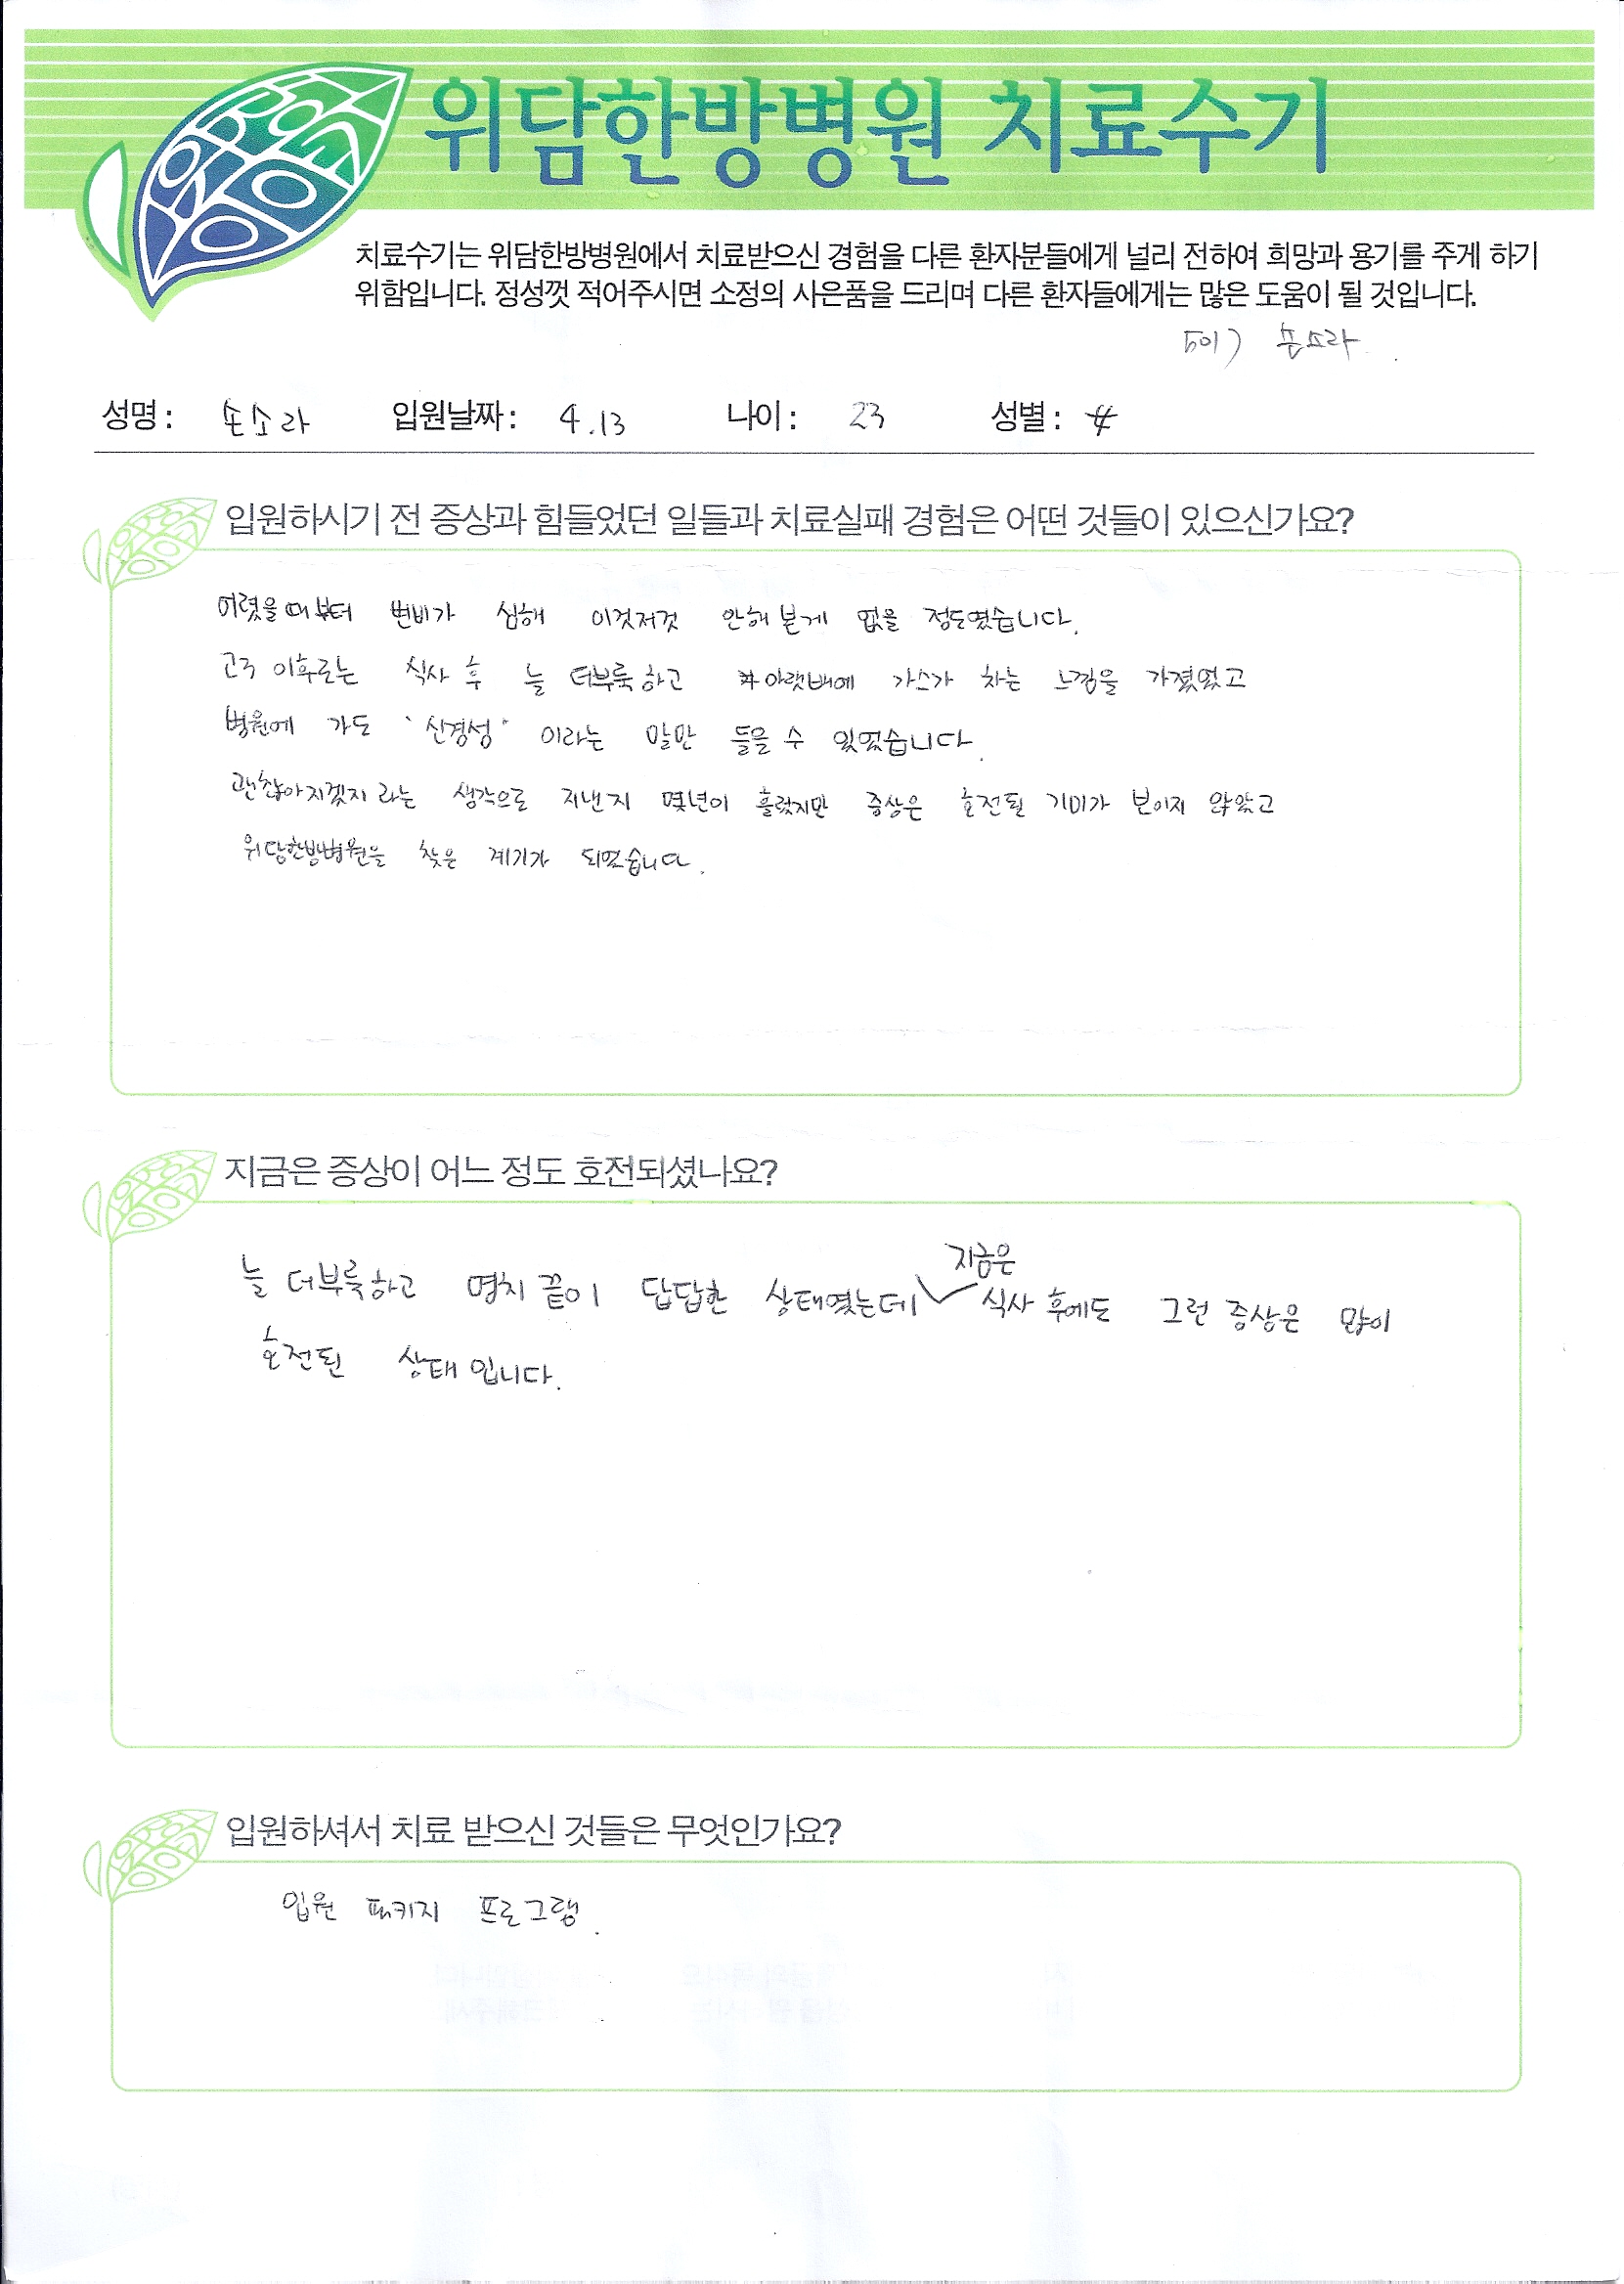 위담한방병원 치료수기
치료수기는 위담한방병원에서 치료받으신 경험을 다른 환자분들에게 널리 전하여 희망과 용기를 주게 하기
위함입니다. 정성껏 적어주시면 소정의 사은품을 드리며 다른 환자들에게는 많은 도움이 될 것입니다.
501) 손소라
성명 : 손소라 입원날짜 : 4.13 나이 : 23 성별 : 女
입원하시기 전 증상과 힘들었던 일들과 치료실패 경험은 어떤 것들이 있으신가요?
어렸을때부터 변비가 심해 이것저것 안해본게 없을 정도였습니다.
고3 이후로는 식사 후 늘 더부룩하고 아랫배에 가스가 차는 느낌을 가졌었고
병원에 가도 '신경성' 이라는 말만 들을 수 있었습니다.
괜찮아지겠지 라는 생각으로 지낸지 몇년이 흘렀지만 증상은 호전될 기미가 보이지 않았고
위담한방병원을 찾은 계기가 되었습니다.
지금은 증상이 어느 정도 호전되셨나요?
늘 더부룩하고 명치 끝이 답답한 상태였는데 지금은 식사 후에도 그런 증상은 많이
호전된 상태입니다.
입원하셔서 치료 받으신 것들은 무엇인가요?
입원 패키지 프로그램.